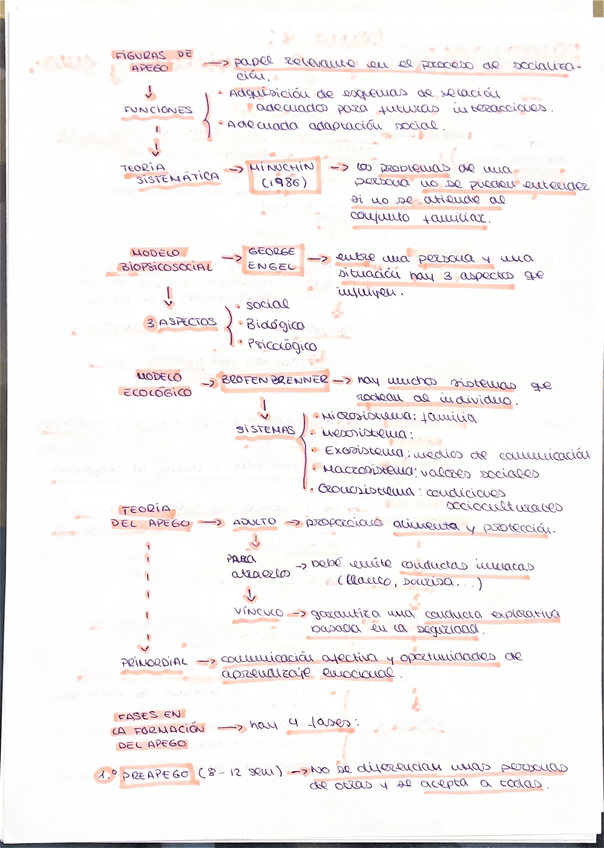 FIGURAS DE APEGO → papel relevante en el proceso de socializa-
ción.
↓
FUNCIONES • Adquisición de esquemas de relación
adecuados para futuras interacciones.
• Adecuada adaptación social.
↓
TEORÍA SISTEMÁTICA → MINUCHIN (1986) → los problemas de una
persona no se pueden entender
si no se atiende al
conjunto familiar.
MODELO BIOPSICOSOCIAL → GEORGE ENGEL → entre una persona y una
situación hay 3 aspectos que
influyen.
↓
3 ASPECTOS • social
• Biológico
• Psicológico
MODELO ECOLÓGICO → BROFENBRENNER → hay muchos sistemas que
rodean al individuo.
↓
SISTEMAS • Microsistema: familia
• Mesosistema:
• Exosistema: medios de comunicación
• Macrosistema: valores sociales
• Cronosistema: condiciones
socioculturales
TEORÍA DEL APEGO → ADULTO → proporciona alimento y protección.
↓
PARA atraerlos → Bebé emite conductas innatas
(llanto, sonrisa...)
↓
VÍNCULO → garantiza una conducta explorativa
basada en la seguridad.
↓
PRIMORDIAL → comunicación afectiva y oportunidades de
aprendizaje emocional.
FASES EN LA FORMACIÓN DEL APEGO → hay 4 fases:
1.º PREAPEGO (8-12 sem) → No se diferencian unas personas
de otras y se acepta a todas.